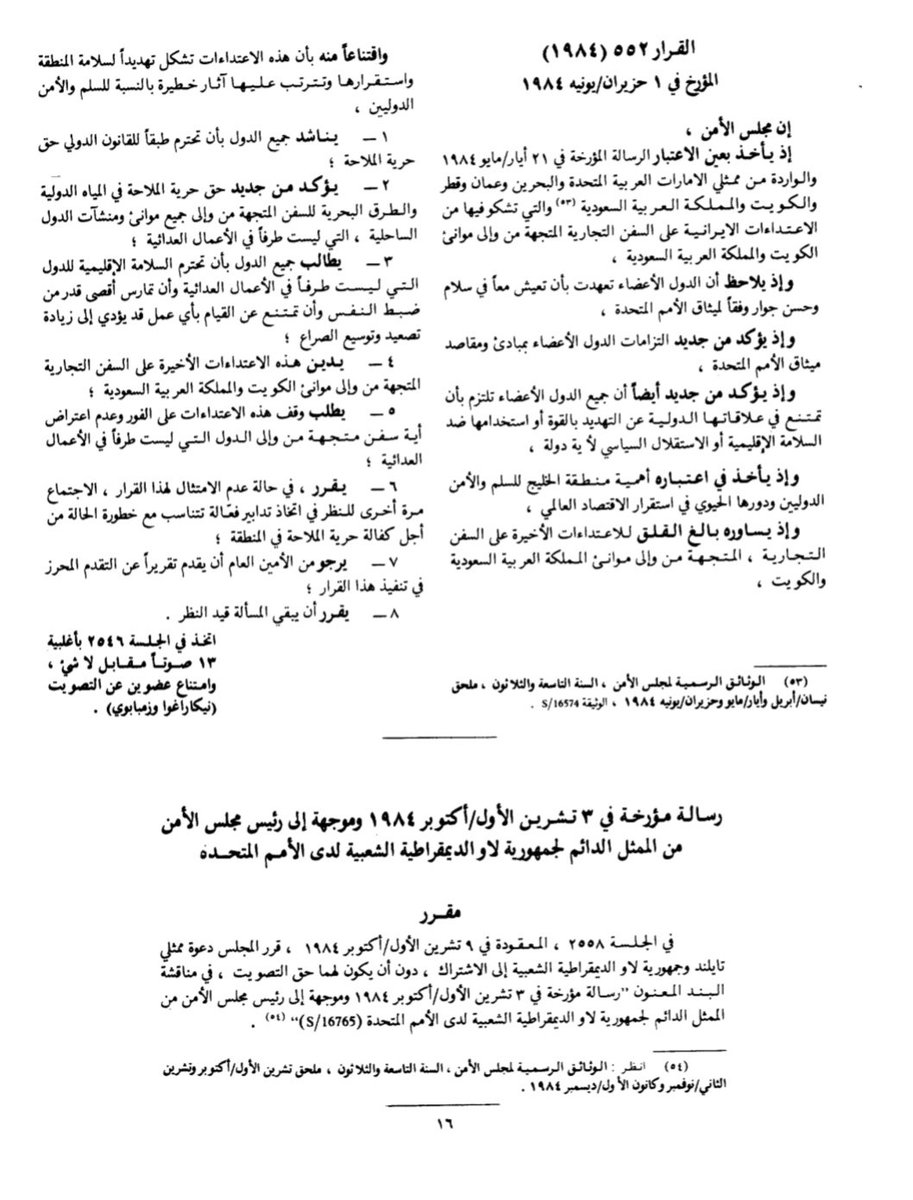 القرار ٥٥٢ (١٩٨٤)
المؤرخ في ١ حزيران/يونيه ١٩٨٤
إن مجلس الأمن ،
إذ يـأخـذ بعين الاعتبار الرسالة المؤرخة في ٢١ أيار/مايو ١٩٨٤
والواردة من ممثلي الامارات العربية المتحدة والبحرين وعمان وقطر
والكويت والمملكة العربية السعودية (٥٣) والتي تشكو فيها من
الاعتداءات الايرانية على السفن التجارية المتجهة من وإلى موانئ
الكويت والمملكة العربية السعودية ،
وإذ يلاحظ أن الدول الأعضاء تعهدت بأن تعيش معاً في سلام
وحسن جوار وفقاً لميثاق الأمم المتحدة ،
وإذ يؤكد من جديد التزامات الدول الأعضاء بمبادئ ومقاصد
ميثاق الأمم المتحدة ،
وإذ يؤكد من جديد أيضاً أن جميع الدول الأعضاء تلتزم بأن
تمتنع في علاقاتها الدولية عن التهديد بالقوة أو استخدامها ضد
السلامة الإقليمية أو الاستقلال السياسي لأية دولة ،
وإذ يأخذ في اعتباره أهمية منطقة الخليج للسلم والأمن
الدوليين ودورها الحيوي في استقرار الاقتصاد العالمي ،
وإذ يساوره بالغ القلق للاعتداءات الأخيرة على السفن
التجارية ، المتجهة من وإلى موانئ المملكة العربية السعودية
والكويت ،
(٥٣) الوثائق الرسمية لمجلس الأمن ، السنة التاسعة والثلاثون ، ملحق
نيسان/أبريل وأيار/مايو وحزيران/يونيه ١٩٨٤ ، الوثيقة S/16574 .
واقتناعاً منه بأن هذه الاعتداءات تشكل تهديداً لسلامة المنطقة
واستقرارها وتترتب عليها آثار خطيرة بالنسبة للسلم والأمن
الدوليين ،
١ ــ يناشد جميع الدول بأن تحترم طبقاً للقانون الدولي حق
حرية الملاحة ؛
٢ ــ يؤكد من جديد حق حرية الملاحة في المياه الدولية
والطرق البحرية للسفن المتجهة من وإلى جميع موانئ ومنشآت الدول
الساحلية ، التي ليست طرفاً في الأعمال العدائية ؛
٣ ــ يطالب جميع الدول بأن تحترم السلامة الإقليمية للدول
التي ليست طرفاً في الأعمال العدائية وأن تمارس أقصى قدر من
ضبط النفس وأن تمتنع عن القيام بأي عمل قد يؤدي إلى زيادة
تصعيد وتوسيع الصراع ؛
٤ ــ يدين هذه الاعتداءات الأخيرة على السفن التجارية
المتجهة من وإلى موانئ الكويت والمملكة العربية السعودية ؛
٥ ــ يطلب وقف هذه الاعتداءات على الفور وعدم اعتراض
أية سفن متجهة من وإلى الدول التي ليست طرفاً في الأعمال
العدائية ؛
٦ ــ يقرر ، في حالة عدم الامتثال لهذا القرار ، الاجتماع
مرة أخرى للنظر في اتخاذ تدابير فعّالة تتناسب مع خطورة الحالة من
أجل كفالة حرية الملاحة في المنطقة ؛
٧ ــ يرجو من الأمين العام أن يقدم تقريراً عن التقدم المحرز
في تنفيذ هذا القرار ؛
٨ ــ يقرر أن يبقي المسألة قيد النظر .
اتخذ في الجلسة ٢٥٤٦ بأغلبية
١٣ صوتاً مقابل لا شئ ،
وامتناع عضوين عن التصويت
(نيكاراغوا وزمبابوي) .
رسالة مؤرخة في ٣ تشرين الأول/أكتوبر ١٩٨٤ وموجهة إلى رئيس مجلس الأمن
من الممثل الدائم لجمهورية لاو الديمقراطية الشعبية لدى الأمم المتحده
مقـرر
في الجلسة ٢٥٥٨ ، المعقودة في ٩ تشرين الأول/أكتوبر ١٩٨٤ ، قرر المجلس دعوة ممثلي
تايلند وجمهورية لاو الديمقراطية الشعبية إلى الاشتراك ، دون أن يكون لهما حق التصويت ، في مناقشة
البند المعنون "رسالة مؤرخة في ٣ تشرين الأول/أكتوبر ١٩٨٤ وموجهة إلى رئيس مجلس الأمن من
الممثل الدائم لجمهورية لاو الديمقراطية الشعبية لدى الأمم المتحدة (S/16765)" (٥٤) .
(٥٤) انظر : الوثائق الرسمية لمجلس الأمن ، السنة التاسعة والثلاثون ، ملحق تشرين الأول/أكتوبر وتشرين
الثاني/نوفمبر وكانون الأول/ديسمبر ١٩٨٤ .
١٦